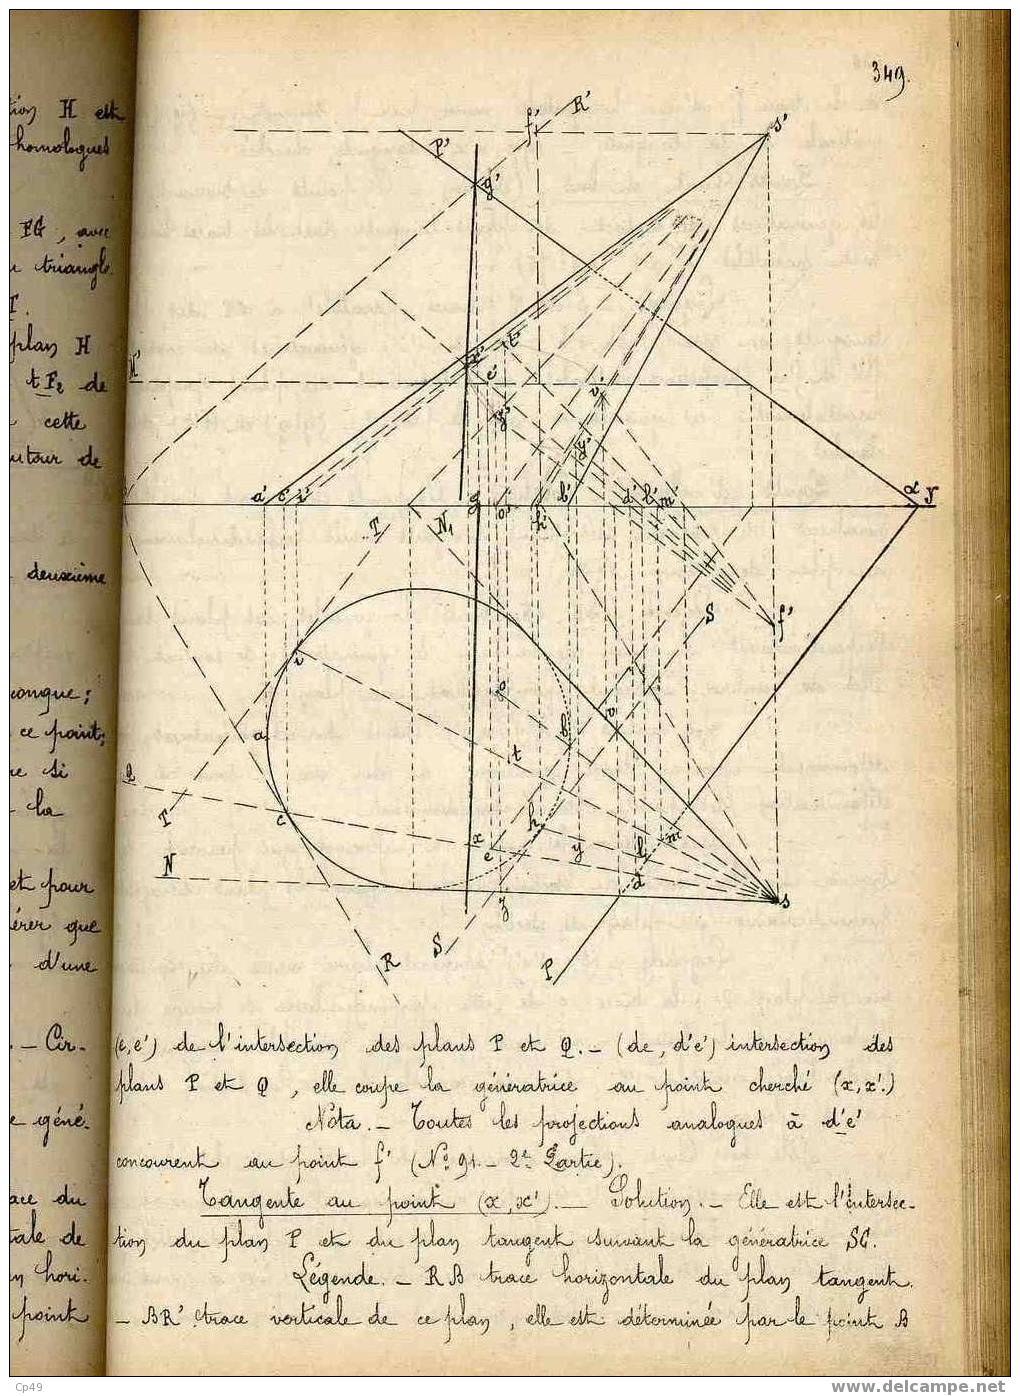 349.
tion H est
homologues
FG, avec
triangle
T.
plan H
t F2 de
cette
autour de
deuxième
conque;
ce point;
re si
la
et pour
érer que
d'une
. _ Cir-
e géné-
ace du
tale de
n hori-
point
R'
f'
s'
P'
g'
x'
t'
N'
e'
v'
z'
y'
a' c' i'
g
o'
h'
b'
d' l' m'
α' Y
N1
T
S
f'
i
o
a
b
v
t
Q
T
c
x
h
m
e
y
l
N
d
s
z
S
R
P
(e, e') de l'intersection des plans P et Q. _ (de, d'e') intersection des
plans P et Q, elle coupe la génératrice au point cherché (x, x'.)
Nota. _ Toutes les projections analogues à d'e'
concourent au point f' (No 91. _ 2e Partie).
Tangente au point (x, x'). _ Solution. _ Elle est l'intersec-
tion du plan P et du plan tangent suivant la génératrice SC.
Légende. _ RB trace horizontale du plan tangent.
_ BR' trace verticale de ce plan, elle est déterminée par le point B
Cp49
www.delcampe.net